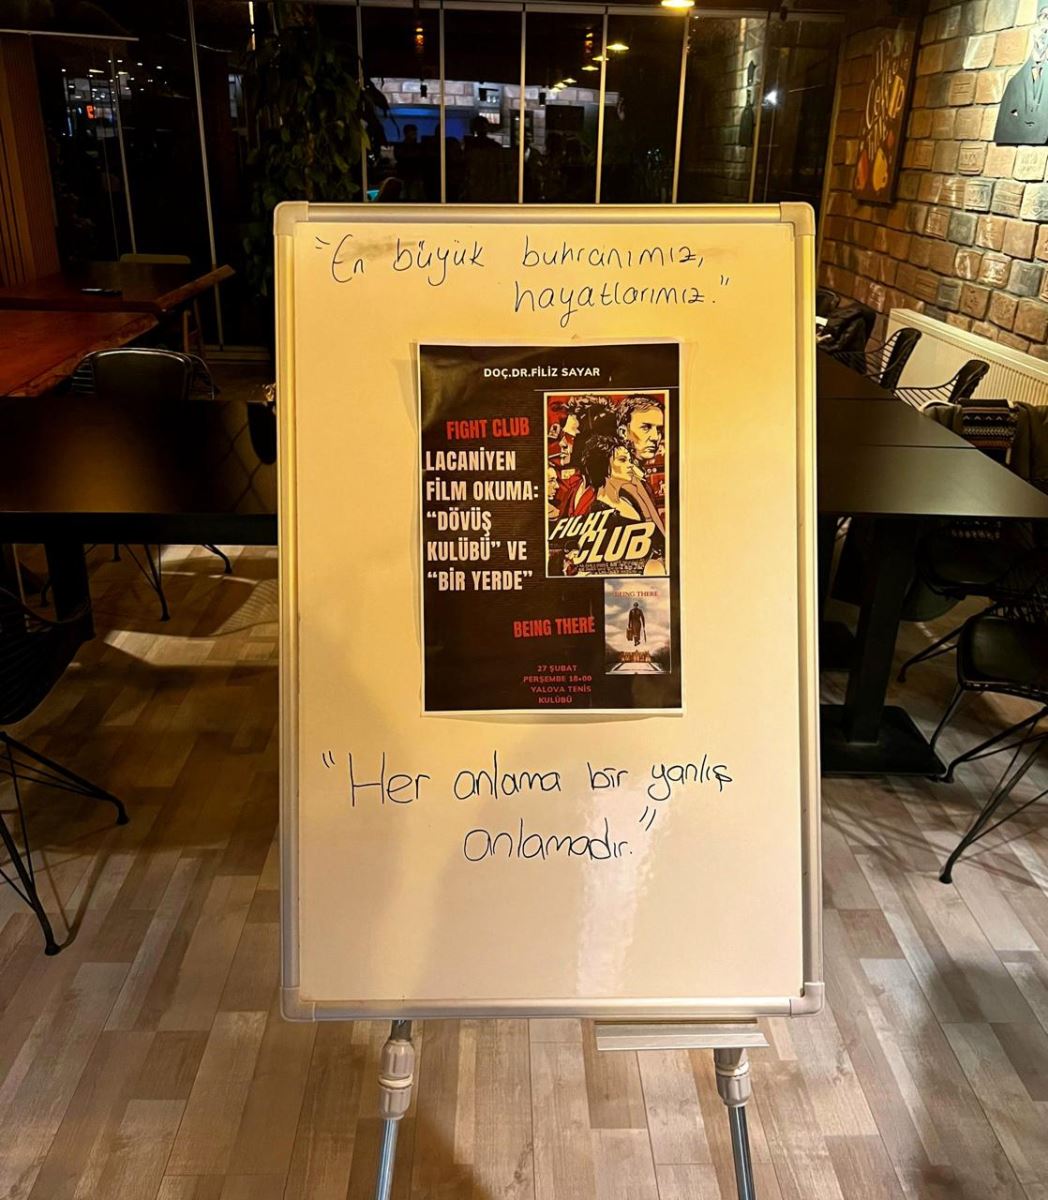 "En büyük buhranımız,
hayatlarımız."
DOÇ.DR.FİLİZ SAYAR
FIGHT CLUB
LACANİYEN
FİLM OKUMA:
“DÖVÜŞ
KULÜBÜ” VE
“BİR YERDE”
FIGHT
CLUB
BEING THERE
BEING THERE
27 ŞUBAT
PERŞEMBE 18:00
YALOVA TENİS
KULÜBÜ
"Her anlama bir yanlış
anlamadır."